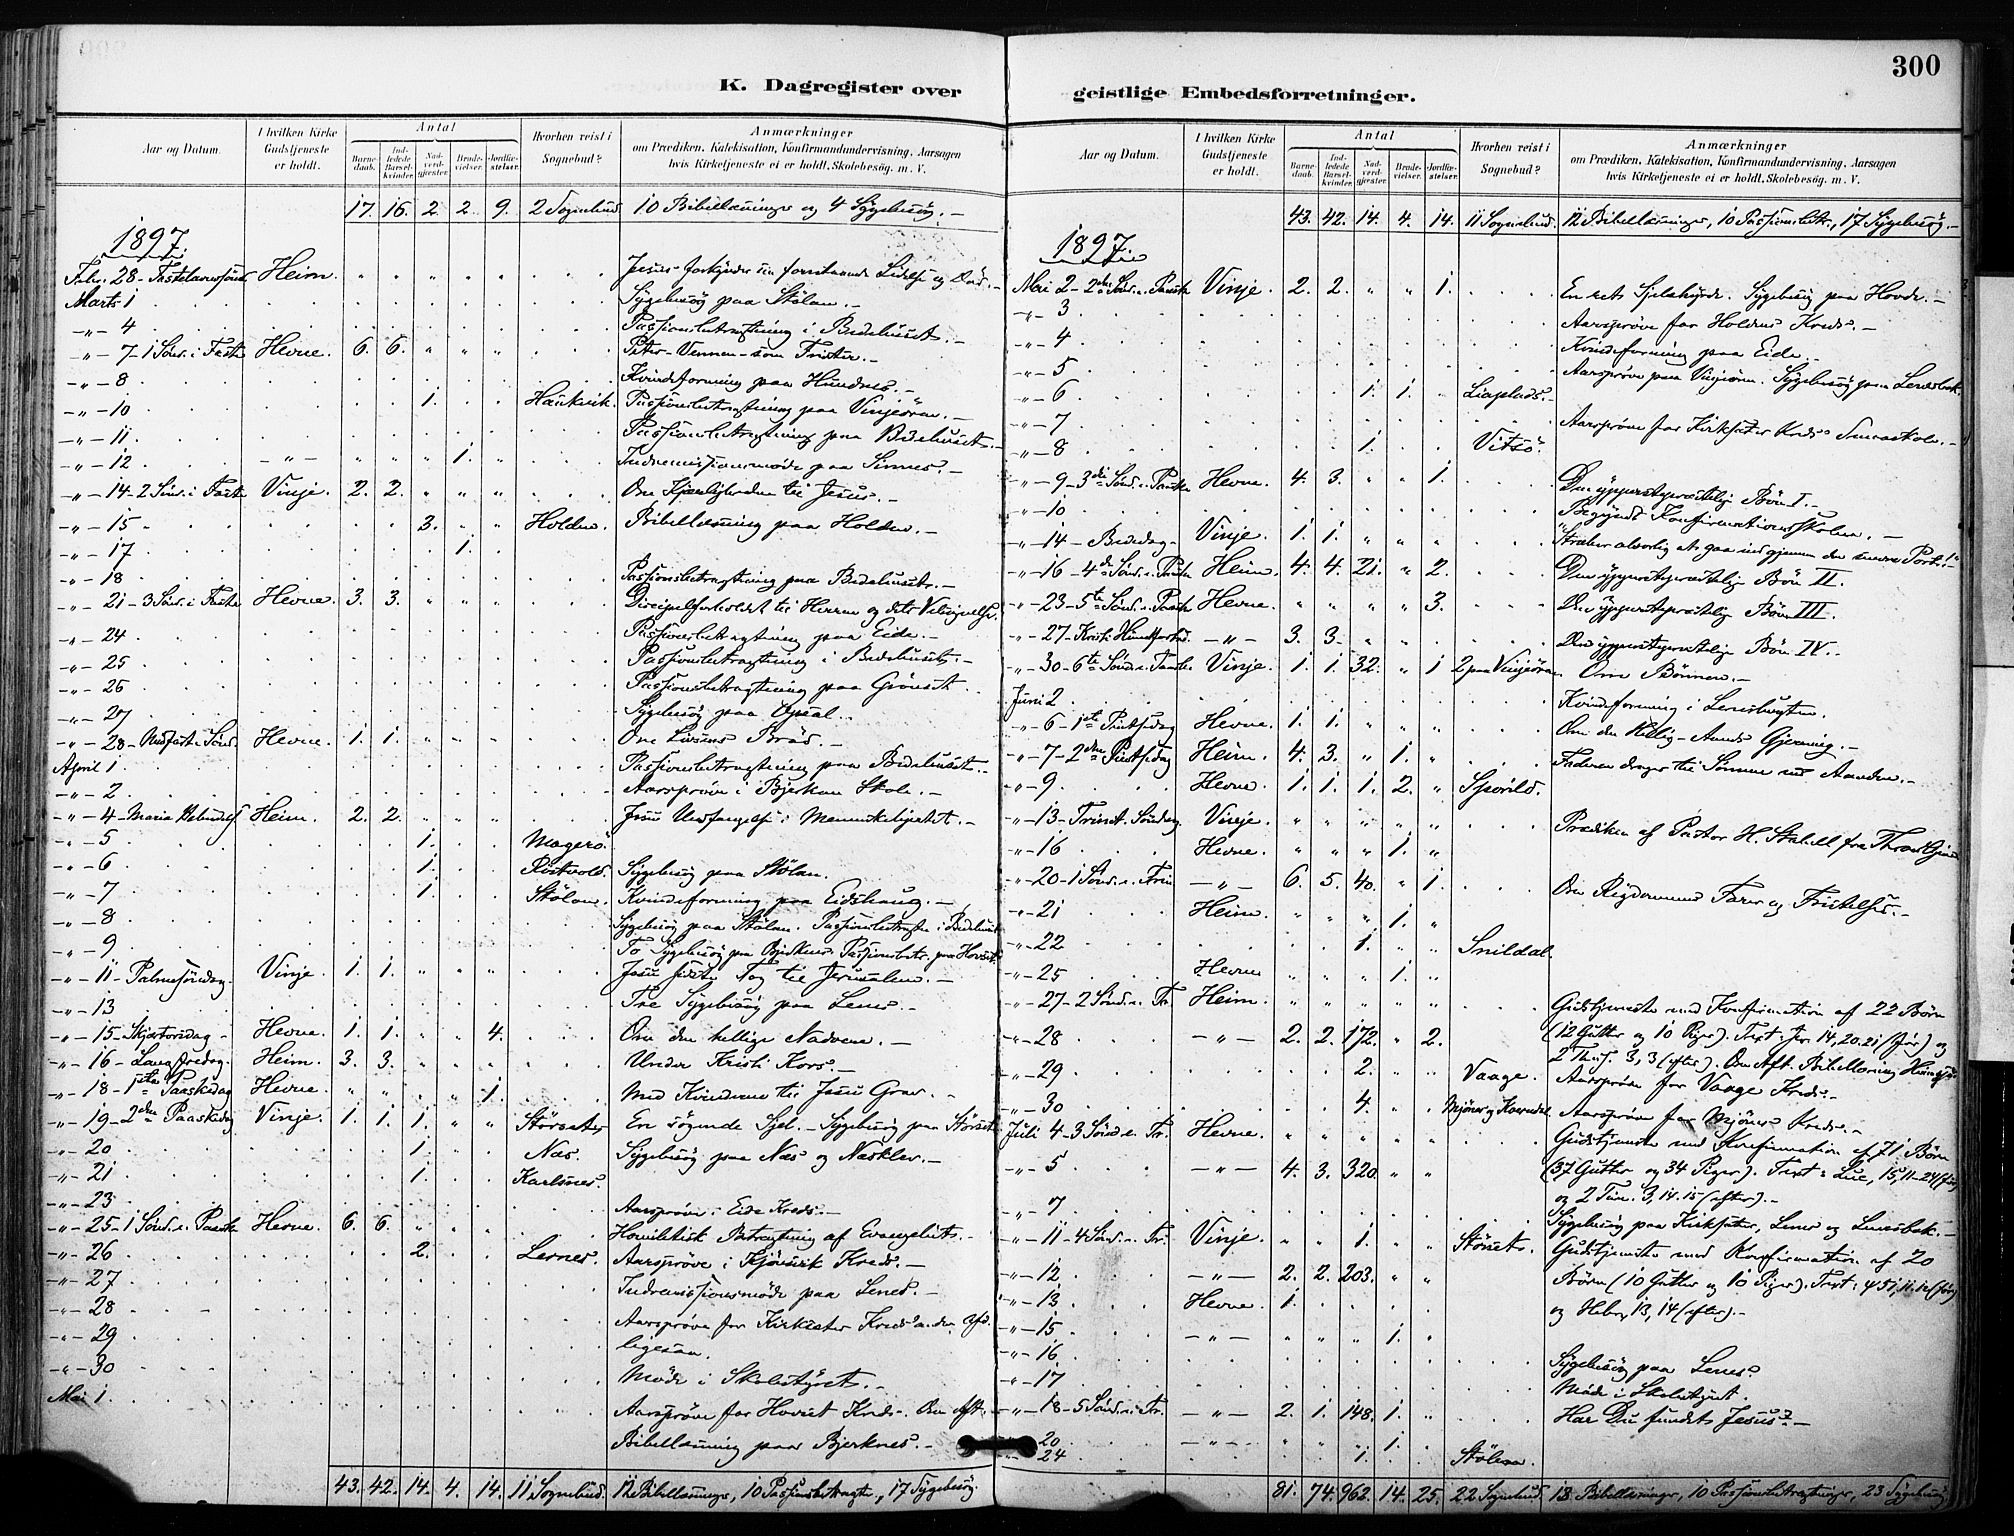 300
K. Dagregister over
Aar og Datum.
I hvilken Kirke Gudstjeneste er holdt.
Antal
Barnedaab.
Indledede Barselkvinder.
Nadverdgjester.
Brudevielser.
Jordfæstelser.
Hvorhen reist i Sognebud?
Anmærkninger
om Prædiken, Katekisation, Konfirmandundervisning, Aarsagen
hvis Kirketjeneste ei er holdt, Skolebesøg. m. V.
17. 16. 2. 2. 9. 2 Sognebud 10 Bibellæsninger og 4 Sygebesøg.-
1897.
Febr. 28 - Fastelavnssønd. Heim. " " " " " Jesus forkynder sin forestaaende Lidelse og Død.-
Marts 1 Sygebesøg paa Stölan.-
-"- 4 Passionsbetragtning i Bedehuset.-
-"- 7 - 1 Sønd. i Faste Hevne. 6. 6. " " " Peter - Vennen - som Frister.-
-"- 8 Kvindeforening paa Hundnes.-
-"- 10 1. Haukvik. Passionsbetragtning paa Vinjeøren.-
-"- 11 Passionsbetragtning paa Bedehuset.-
-"- 12 -"- " " " 1. Indremissionsmøde paa Sinnes.-
-"- 14 - 2 Sønd. i Faste Vinje. 2. 2. " " " Om Kjærligheden til Jesus.-
-"- 15 3. " " Holden. Bibellæsning paa Holden.-
-"- 17 1.
-"- 18 Passionsbetragtning paa Bedehuset.-
-"- 21 - 3 Sønd. i Faste Hevne. 3. 3. " " " Discipelforholdet til Herren og dets Velsignelse.
-"- 24 Passionsbetragtning paa Eide.-
-"- 25 Passionsbetragtning i Bedehuset.-
-"- 26 Passionsbetragtning paa Grönset
-"- 27 Sygebesøg paa Opsal.
-"- 28 - Midfaste Sønd. Hevne. 1. 1. " " " Om Livsens Brød.-
April 1 Passionsbetragtning paa Bedehuset.-
-"- 2 Aarsprøven i Bjerkan Skole.-
-"- 4 - Maria Bebudelse Heim. 2. 2. " " " Jesu Undfangelse i Menneskehjertet.-
-"- 5 1. Magerö.
-"- 6 1. Röstvold. Sygebesøg paa Stölan.
-"- 7 1. Stölan. Kvindeforening paa Eidshaug.-
-"- 8 Sygebesøg paa Stölan. Passionsbetragtn. i Bedehuset
-"- 9 To Sygebesøg paa Bjerknes. Passionsbetr. paa Hovset
-"- 11 - Palmesøndag. Vinje. 1. 1. " " " Jesu sidste Tog til Jerusalem.-
-"- 13 Tre Sygebesøg paa Lenes.-
-"- 15 - Skjærtorsdag - Hevne. 1. 1. " " 4. Om den hellige Nadvere.-
-"- 16 - Langfredag. Heim. 3. 3. " " " Under Kristi Kors.-
-"- 18 - 1ste Paaskedag Hevne. " " " " 1. Med Kvinderne til Jesu Grav.-
-"- 19 - 2den Paaskedag Vinje. 1. 1. 1. " " Störseter En søgende Sjel. - Sygebesøg paa Störset
-"- 20 1. Næs. Sygebesøg paa Næs og Næsklev.-
-"- 21 1. Karlsnes.
-"- 23 Aarsprøve i Eide Kreds.-
-"- 25 - 1 Sønd. e. Paaske Hevne. 6. 6. " " " Homiletisk Betragtning af Evangeliet.-
-"- 26 2. Lernes. Aarsprøve i Kjörsvik Kreds.-
-"- 27 Indremissionsmøde paa Lenes.-
-"- 28 Aarsprøve for Kirksæter Kreds's
-"- 29
-"- 30 Møde i Skolestyret.-
Mai 1 Aarsprøve for Hovset Kreds. Om Aft.
Bibellæsning paa Bjerknes.-
43. 42. 14. 4. 14. 11 Sognebud. 12 Bibellæsninger, 10 Passionsbetragtn., 17 Sygebesøg.
geistlige Embedsforretninger.
Aar og Datum.
I hvilken Kirke Gudstjeneste er holdt.
Antal
Barnedaab.
Indledede Barselkvinder.
Nadverdgjester.
Brudevielser.
Jordfæstelser.
Hvorhen reist i Sognebud?
Anmærkninger
om Prædiken, Katekisation, Konfirmandundervisning, Aarsagen
hvis Kirketjeneste ei er holdt, Skolebesøg. m. V.
43. 42. 14. 4. 14. 11 Sognebud. 12 Bibellæsninger, 10 Passionsbetr., 17 Sygebesøg.-
1897.
Mai 2 - 2den Sønd. e. Paaske Vinje. 2. 2. " " 1. En ret Sjelehyrde. Sygebesøg paa Hovde.-
-"- 3 Aarsprøve for Holden Kreds.-
-"- 4 Kvindeforening paa Eide.-
-"- 5 Aarsprøve paa Vinjeøren. Sygebesøg paa Lenesbak.
-"- 6 1. 1. Liaplads.-
-"- 7 Aarsprøve for Kirksæter Kreds Smaaskole.-
-"- 8 1. Vitsö.
-"- 9 - 3die Sønd. e. Paaske Hevne. 4. 3. " " 1. Den ypperstepræstelige Bøn I.
-"- 10 Begyndt Konfirmationsskolen.-
-"- 14 - Bededag - Vinje. 1. 1. " " " "Stræber alvorlig at gaa ind gjennem den snevre Port!"
-"- 16 - 4de Sønd. e. Paaske Heim. 4. 4. 21. " 2. Den ypperstepræstelige Bøn II.
-"- 23 - 5te Sønd. e. Paaske Hevne. " " " " 3. Den ypperstepræstelige Bøn III.
-"- 27 - Kristi Himmelfartsd. -"- 3. 3. " " Den ypperstepræstelige Bøn IV.-
-"- 30 - 6te Sønd. e. Paaske Vinje. 1. 1. 32. " 1 2 paa Vinjeøren Om Bønnen.-
Juni 2 Kvindeforening i Lenesbugten.
-"- 6 - 1ste Pintsedag Hevne. 1. 1. " " " Om den Hellig-Aands Gjerning.-
-"- 7 - 2den Pintsedag Heim. 4. 3. " 1. Faderen drager til Sønnen ved Aanden.-
-"- 9 Hevne. 1. 1. 1. 2. " Spörild.
-"- 13 - Trinit. Søndag Vinje. " " " " " Prædiken af Pastor H. Stabell fra Throndhjem
-"- 16 Hevne. " " " 1. "
-"- 20 - 1 Sønd. e. Trin -"- 6. 5. 40. " 1. Om Rigdommens Farer og Fristelser.-
-"- 21 Heim. " " " 1. "
-"- 22 1. " " Snildal.
-"- 25 Hevne " " " 1. "
-"- 27 - 2 Sønd. e. Tr. Heim. " " " " " Gudstjeneste med Konfirmation af 22 Børn
-"- 28 -"- 2. 2. 172. " 2. (12 Gutter og 10 Piger). Text Jer. 14, 20. 21 (før) og
2 Thess. 3, 3 (efter). Om Aft. Bibellæsning
-"- 29 2. " " Vaage. Aarsprøve for Vaage Kreds.-
-"- 30 4. " " Mjönes og Aarsprøve for Mjönes Kreds.-
Juli 4 - 3 Sønd. e. Tr. Hevne. " " " " " Gudstjeneste med Konfirmation af 71 Børn
-"- 5 -"- 4. 3. 320. " " (37 Gutter og 34 Piger). Text: Luc. 15, 11-24 (før)
og 2 Tim. 3, 14. 15 (efter).-
-"- 7 Sygebesøg paa Kirksæter, Lenes og Lenesbak.-
-"- 11 - 4 Sønd. e. Tr. Vinje. " " 1. " " Störset. Gudstjeneste med Konfirmation af 20
-"- 12 -"- 2. 2. 203. " " Børn (10 Gutter og 10 Piger). Text:
-"- 13 Hevne. 1. og Hebr. 13, 14 (efter).-
-"- 15 -"- " " " 1. "
-"- 16 Sygebesøg paa Lenes.
-"- 17 Møde i Skolestyret.
-"- 18 - 5 Sønd. e. Tr. -"- 2. 1. 148. 1. " Har Du fundet Jesus?-
-"- 20 -"- " " " 1. "
-"- 24 1. Stölan
81. 74. 962. 14. 25. 22 Sognebud 13 Bibellæsninger, 10 Passionsbetragtninger, 23 Sygebesøg